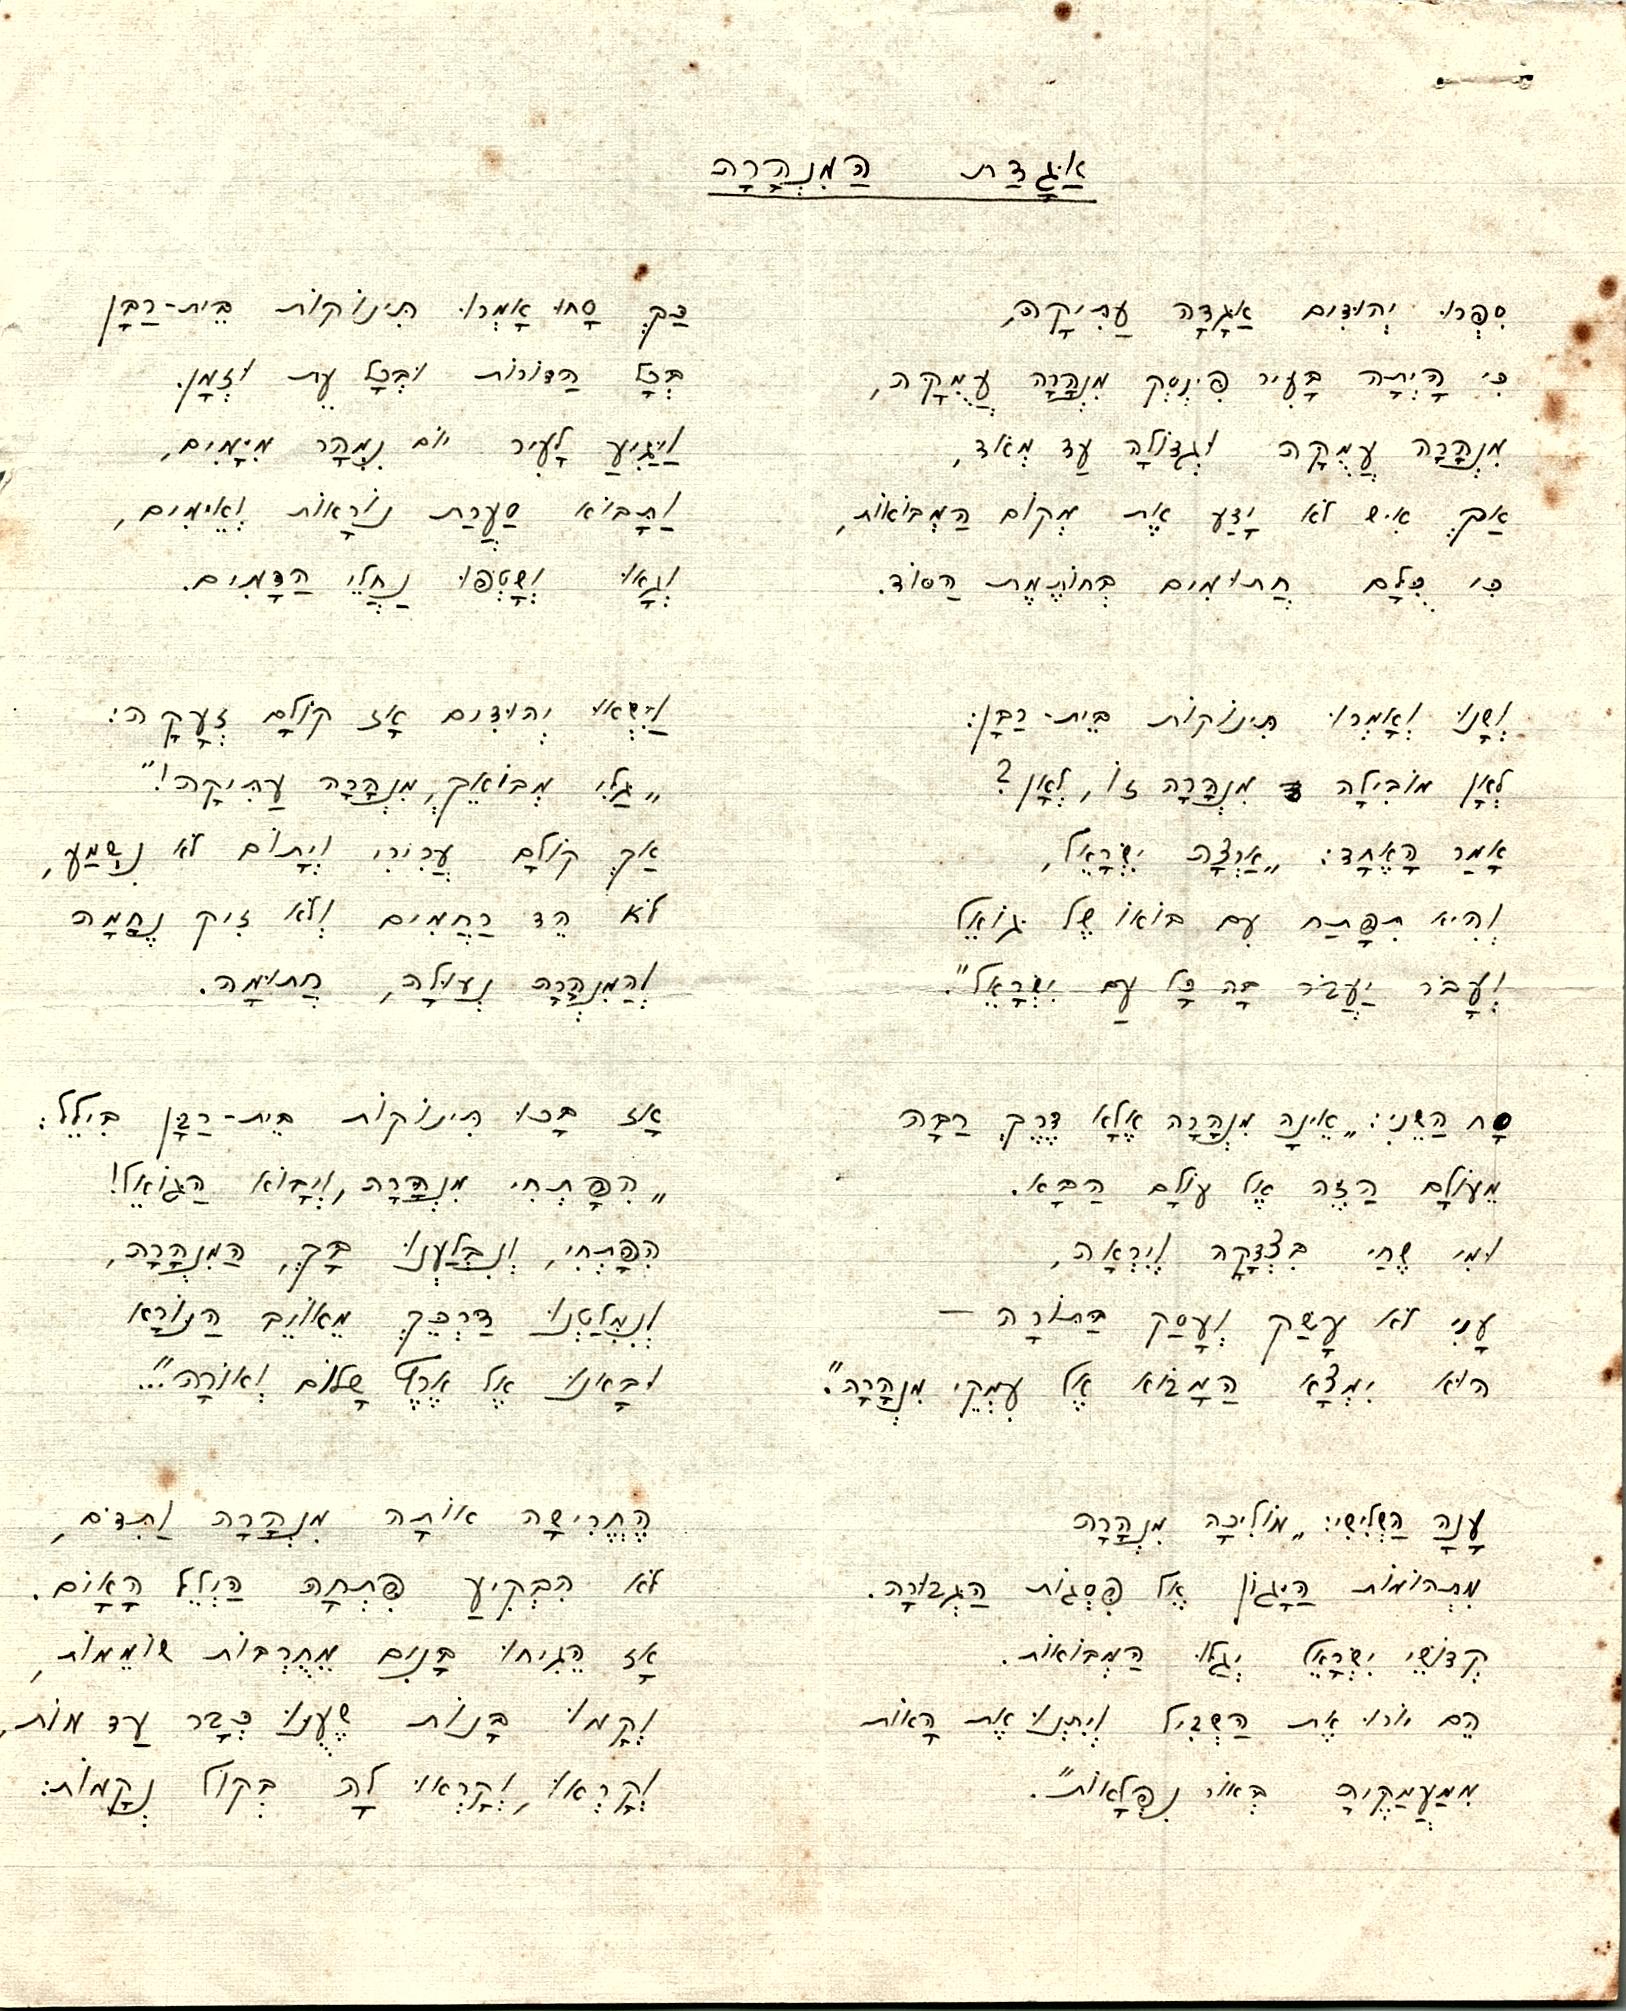 אַגָּדַת הַמִּנְהָרָה
סִפְּרוּ יְהוּדִים אַגָּדָה עַתִּיקָה,
כִּי הָיְתָה בָּעִיר פִּינְסְק מִנְהָרָה עֲמֻקָּה,
מִנְהָרָה עֲמֻקָּה וּגְדוֹלָה עַד מְאֹד,
אַךְ אִישׁ לֹא יָדַע אֶת מְקוֹם הַמְּבוֹאוֹת,
כִּי כֻּלָּם חֲתוּמִים בְּחוֹתֶמֶת הַסּוֹד.
וְשָׁנוּ וְאָמְרוּ תִּינוֹקוֹת בֵּית-רַבָּן:
לְאָן מוֹבִילָה מִנְהָרָה זוֹ, לְאָן?
אָמַר הָאֶחָד: „אַרְצָה יִשְׂרָאֵל,
וְהִיא תִּפָּתַח עִם בּוֹאוֹ שֶׁל גּוֹאֵל
וְעָבֹר יַעֲבֹר בָּהּ כָּל עַם יִשְׂרָאֵל".
סָח הַשֵּׁנִי: „אֵינָהּ מִנְהָרָה אֶלָּא דֶּרֶךְ רַבָּה
מֵעוֹלָם הַזֶּה אֶל עוֹלָם הַבָּא.
וּמִי שֶׁחַי בִּצְדָקָה וְיִרְאָה,
עָנִי לֹא עָשַׁק וְעָסַק בַּתּוֹרָה –
הוּא יִמְצָא הַמָּבוֹא אֶל עִמְקֵי מִנְהָרָה".
עָנָה הַשְּׁלִישִׁי: „מוֹלִיכָה מִנְהָרָה
מִתְּהוֹמוֹת הַיָּגוֹן אֶל פִּסְגוֹת הַגְּבוּרָה.
קְדוֹשֵׁי יִשְׂרָאֵל יְגַלּוּ הַמְּבוֹאוֹת.
הֵם יוֹרוּ אֶת הַשְּׁבִיל וְיִתְּנוּ אֶת הָאוֹת
מִמַּעֲמַקֶּיהָ בְּאוֹר נִפְלָאוֹת".
כַּךְ סָחוּ אָמְרוּ תִּינוֹקוֹת בֵּית-רַבָּן
בְּכָל הַדּוֹרוֹת וּבְכָל עֵת וּזְמָן.
וַיַּגִּיעַ לָעִיר יוֹם נִמְהָר מִיָּמִים,
וַתָּבוֹא סַעֲרַת נוֹרָאוֹת וְאֵימִים,
וְגָאוּ וְשָׁטְפוּ נַחֲלֵי הַדָּמִים.
וַיִּשְׂאוּ יְהוּדִים אָז קוֹלָם זְעָקָה:
„גַּלִּי מְבוֹאֵךְ, מִנְהָרָה עַתִּיקָה!"
אַךְ קוֹלָם עֲרִירִי וְיָתוֹם לֹא נִשְׁמַע,
לֹא הֵד רַחֲמִים וְלֹא זִיק נֶחָמָה
וְהַמִּנְהָרָה נְעוּלָה, חֲתוּמָה.
אָז בָּכוּ תִּינוֹקוֹת בֵּית-רַבָּן בִּילֵל:
„הִפָּתְחִי מִנְהָרָה, וְיָבוֹא הַגּוֹאֵל!
הִפָּתְחִי, וְנִבְלַעְנוּ בָּךְ, הַמִּנְהָרָה,
וְנִמְלַטְנוּ דַּרְכֵּךְ מֵאוֹיֵב הַנּוֹרָא
וּבָאנוּ אֶל אֶרֶץ שָׁלוֹם וְאוֹרָה"...
הֶחֱרִישָׁה אוֹתָהּ מִנְהָרָה וַתִּדֹּם,
לֹא הִבְקִיעַ פִּתְחָהּ הַיְלֵל הָאָיֹם.
אָז הֵגִיחוּ בָּנִים מֵחֳרָבוֹת שׁוֹמֵמוֹת,
וְקָמוּ בָּנוֹת שֶׁעֻנּוּ כְּבָר עַד מוֹת,
וְקָרְאוּ, וְקָרְאוּ לָהּ בְּקוֹל נְקָמוֹת: